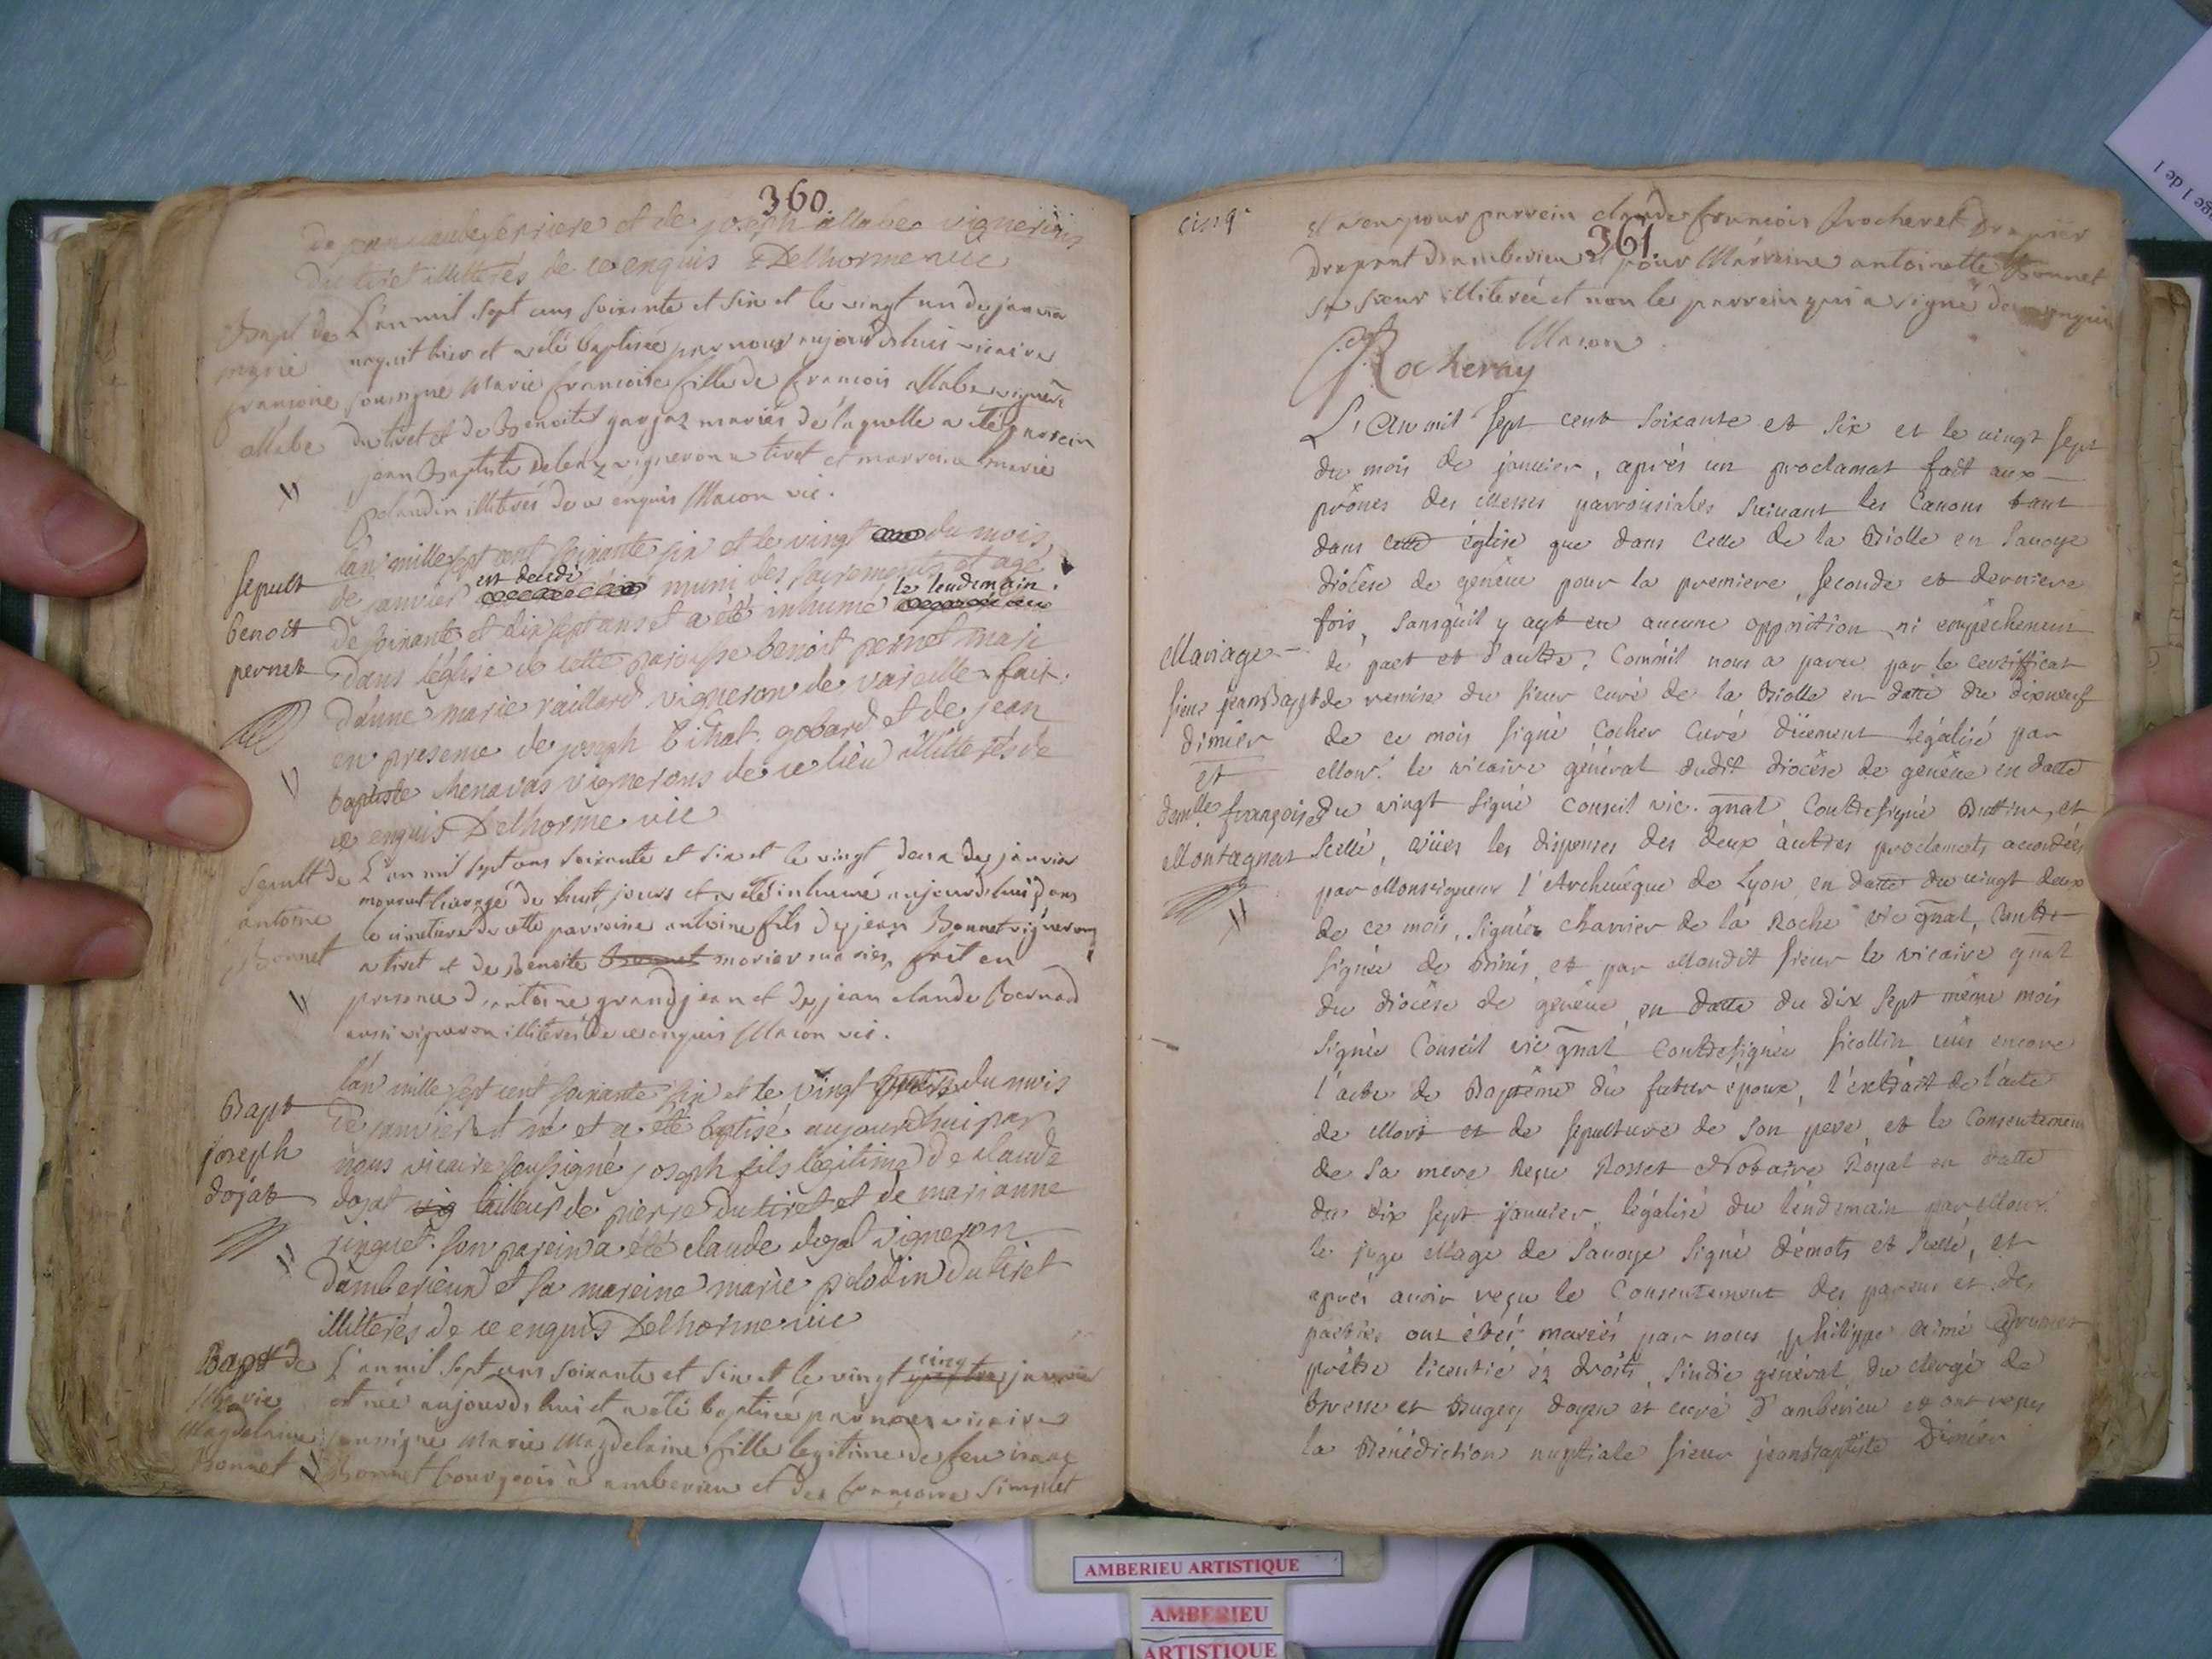 360
de jean claude ferriere et de joseph allabe vignerons
du tiret illitterés de ce enquis Delhorme vic
Bapt de
marie
francoise
allabe
L'an mil sept cens soixante et six et le vingt un de janvier
naquit hier et a eté baptisée par nous aujourdhuis vicaire
soussigne Marie francoise fille de francois allabe vigneron
du tiret et de Benoite garjaz mariés de laquelle a eté parrein
jean Baptiste vigneron a tiret et marraine marie
pelaudin illiterés de ce enquis Macon vic.
sepult
benoit
pernet
lan mille sept cent soixante six et le vingt du mois
de janvier est decedé muni des sacrements et agé
de soixante et dix sept ans et a été inhumé le lendemain
dans l'église de cette paroisse benoit pernet mari
d'anne marie raillard vigneron de vareille fait
en presence de joseph bihat gobard et de jean
baptiste chenavas vignerons de ce lieu illitterés de
ce enquis Delhorme vic
Sepult de
antoine
Bonnet
L'an mil sept cens soixante et six et le vingt deux de janvier
mourut hier agé de huit jours et a eté inhumé aujourdshuis dans
le cimetiere de cette parroisse antoine fils de jean Bonnet vigneron
a tiret et de Benoite Bonnet morier mariés, fait en
presence d'antoine grandjean et de jean claude Bernard
aussi vigneron illiterés de ce enquis Macon vic.
Bapt
joseph
dojat
lan mille sept cent soixante six et le vingt du mois
de janvier est né et a été baptisé aujourdhui par
nous vicaire soussigné joseph fils légitime de claude
dojat vig tailleur de pierre du tiret et de marianne
ringuet. son parein a été claude dojat vigneron
damberieux et sa mareine marie pelodin du tiret
illitterés de ce enquis Delhorme vic
Bapt de
Marie
Magdelaine
Bonnet
L'an mil sept cens soixante et six et le vingt cinq janvier
est née aujourds hui et a eté baptisée par nous vicaire
soussigne Marie Magdelaine fille legitime de feu isaac
Bonnet bourgeois à amberieu et de francoise Simplet
cinq
361.
et a eu pour parrein claude francois Rocheret drapier
drapant d'amberieu et pour Marraine antoinette Bonnet
sa soeur illiterée et non le parrein qui a signé de ce enquis
Macon
Rocheray
L'an mil sept cent soixante et six et le vingt sept
du mois de janvier, après un proclamat fait aux
prônes des Messes parroissiales suivant les Canons tant
dans cette église que dans celle de la Biolle en Savoye
diocèse de genêve pour la premiere, seconde et derniere
fois, sansqu'il y ayt eu aucune opposition ni empêchement
de part et d'autre, Comm'il nous a paru par le certifficat
Mariage
sieur jeanBapt
dimier
et
demlle françoise
Montagnat
de remise du sieur curé de la Biolle en datte du dixneuf
de ce mois signé Cocher Curé düement légalisé par
Monr. le vicaire général dudit diocèse de genêve en datte
du vingt signé Conseil vic. gnal, Contresigné Buttin, et
scellé, vües les dispenses des deux autres proclamats accordées
par Monseigneur l'Archevêque de Lyon, en datte du vingt deux
de ce mois, signée Charrier de la Roche vic gnal, Contre
signée de Brinis, et par Mondit sieur le vicaire gnal
du diocèse de genêve, en datte du dix sept même mois
signée Conseil vic gnal Contresignée sicollin, vüs encore
l'acte de Baptême du futur époux, l'extrait de l'acte
de Mort et de sepulture de son pere, et le Consentement
de sa mere reçu Rosset Notaire Royal en datte
du dix sept janvier, légalisé du lendemain par Monr.
le juge Mage de Savoye signé démots et scellé, et
après avoir reçu le Consentement des parens et des
parties ont étés mariés par nous philippe aimé Brunet
prêtre licentié èz droits, sindic général du clergé de
Bresse et Bugey doyen et curé d'ambérieu et ont reçus
la Bénédiction nuptiale sieur jeanBaptiste Dimier
AMBERIEU ARTISTIQUE
AMBERIEU
ARTISTIQUE